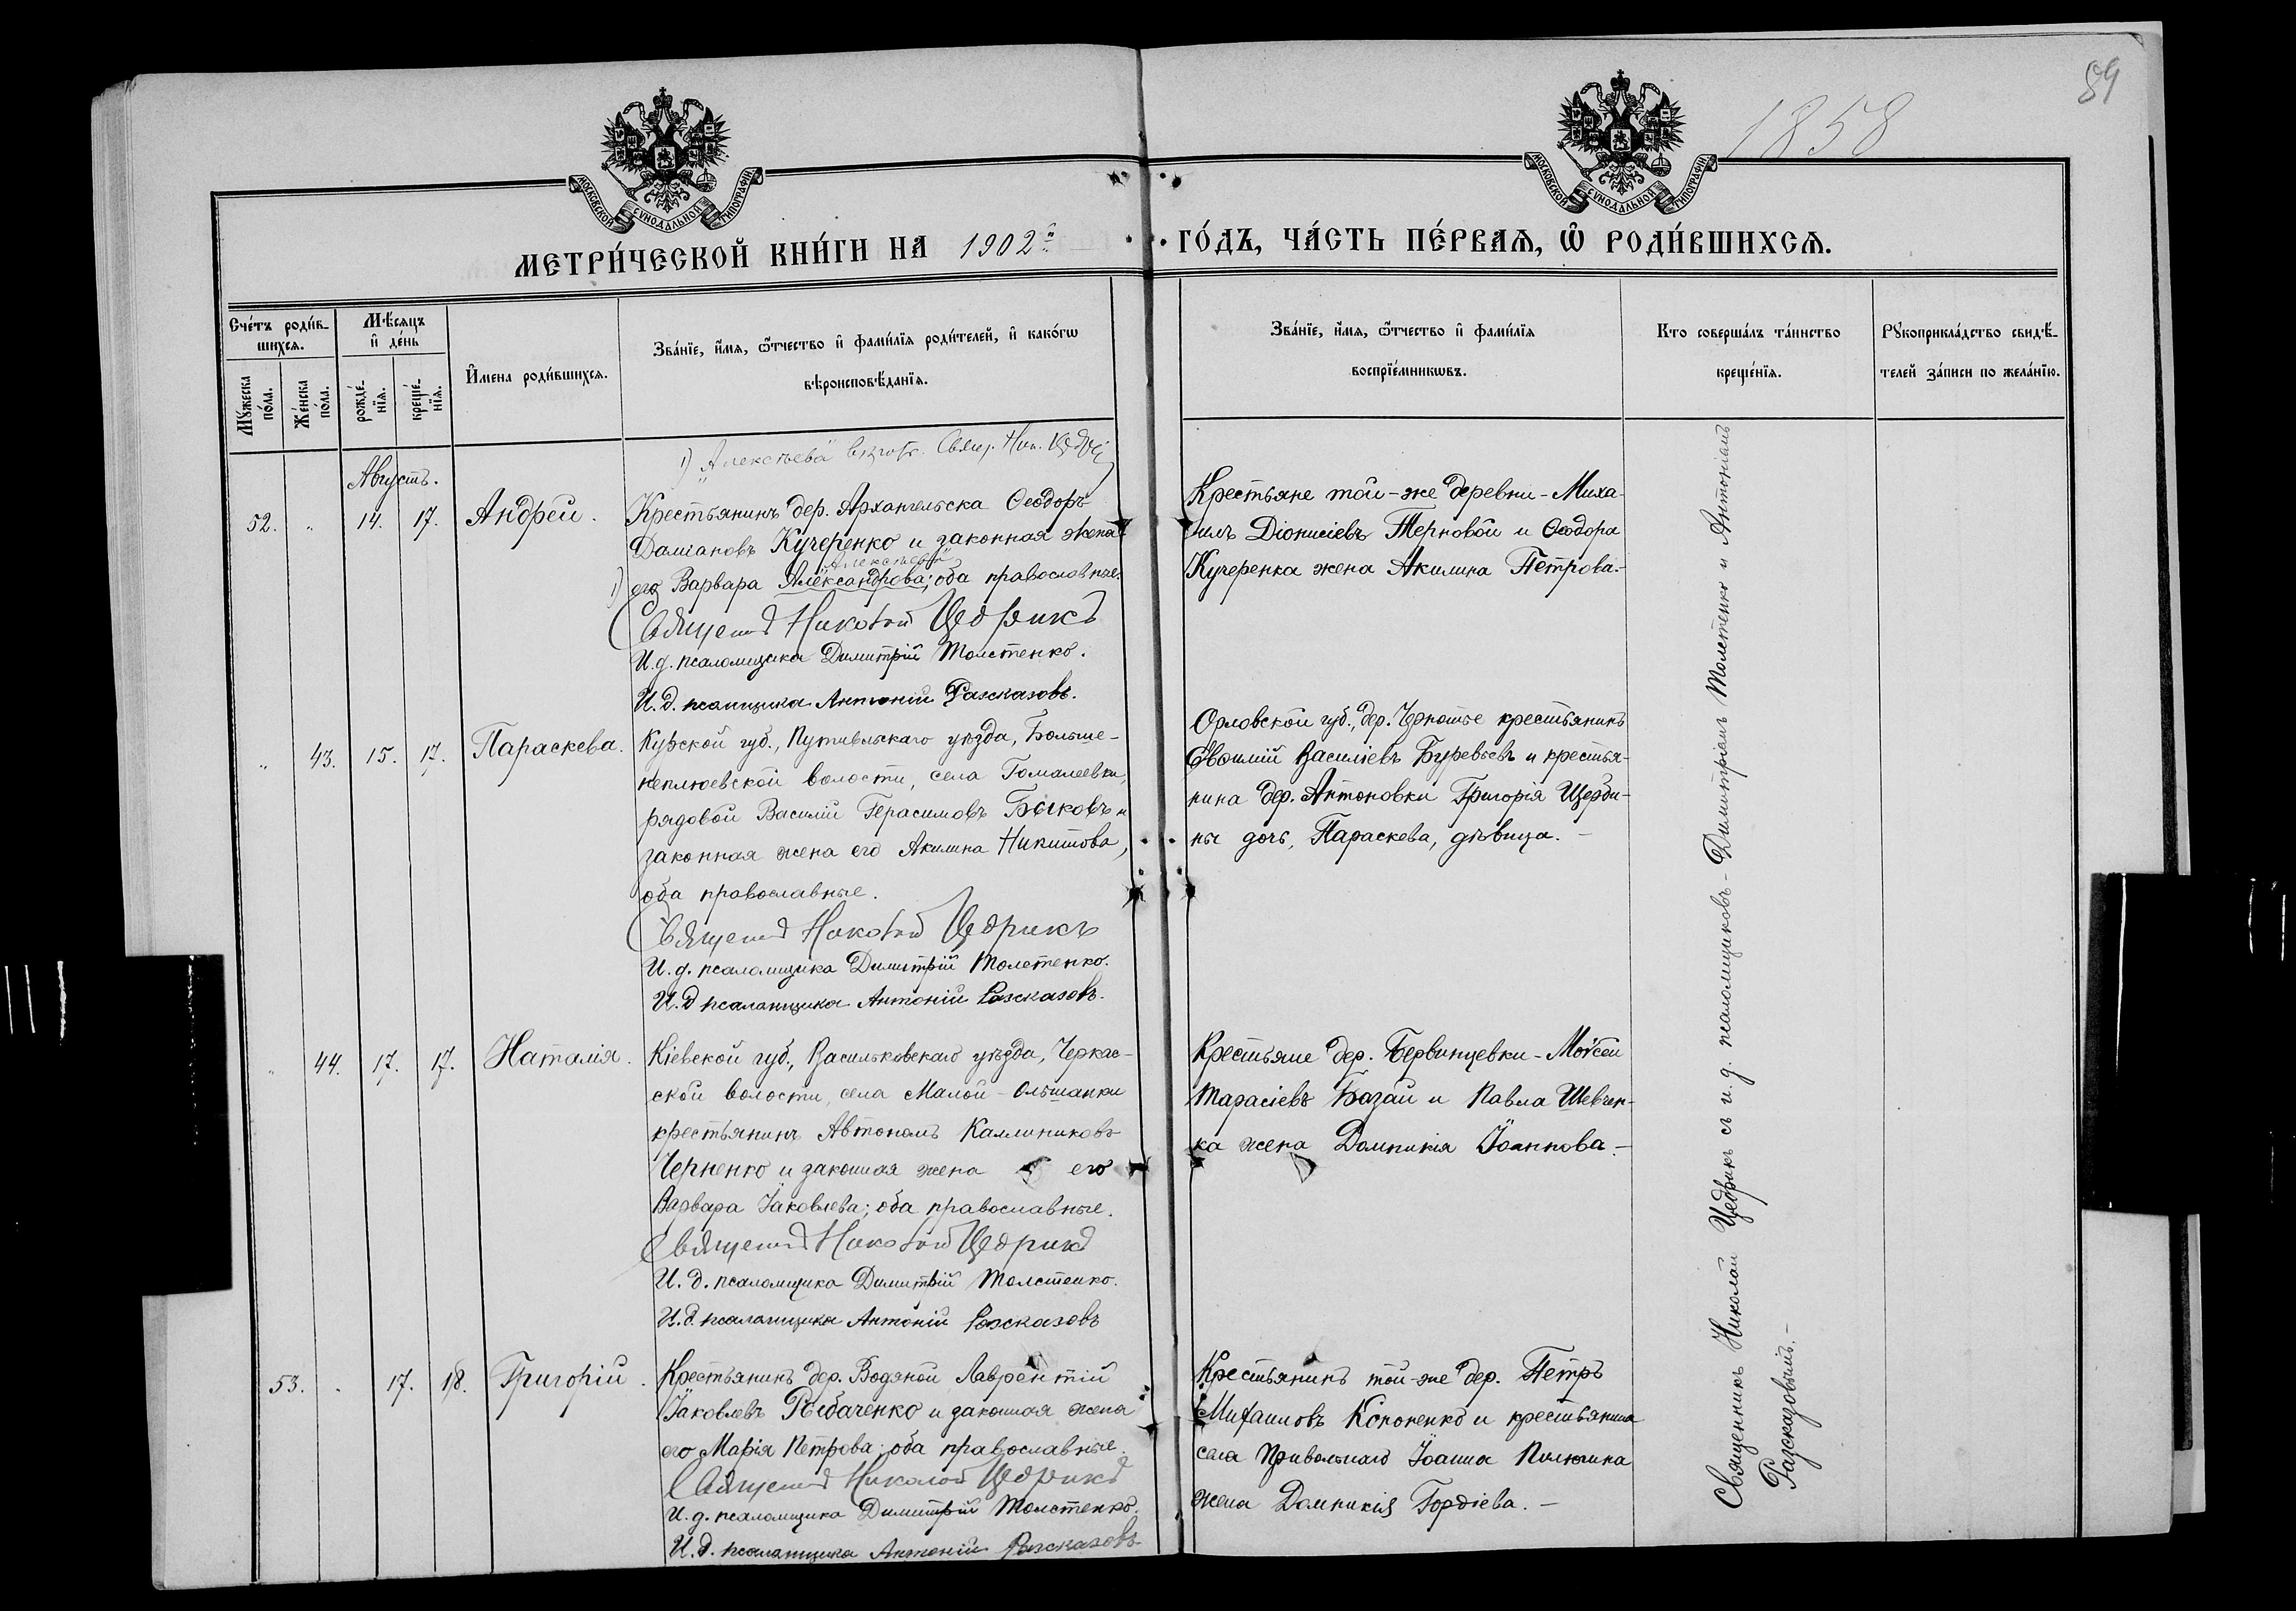 89
1858
МОСКОВСКОЙ СѴНОДАЛЬНОЙ ТИПОГРАФІИ
МОСКОВСКОЙ СѴНОДАЛЬНОЙ ТИПОГРАФІИ
МЕТРИ́ЧЕСКОЙ КНИ́ГИ НА 1902й
ГО́ДЪ, ЧА́СТЬ ПЕ́РВАѦ, Ѿ РОДИ́ВШИХСѦ.
Сче́тъ роди́в-
шихсѧ.
Мꙋ́жеска по́ла.
Же́нска по́ла.
Мѣ́сѧцъ
и҆ де́нь
рожде́-
нїѧ.
креще́-
нїѧ.
И҆́мена роди́вшихсѧ.
Зва́нїе, и҆́мѧ, ѻ҆́тчество и҆ фами́лїѧ роди́телей, и҆ како́гѡ
вѣроисповѣ́данїѧ.
Зва́нїе, и҆́мѧ, ѻ҆́тчество и҆ фами́лїѧ
воспрїе́мникѡвъ.
Кто соверша́лъ та́инство
креще́нїѧ.
Рꙋкоприкла́дство свидѣ́-
телей за́писи по жела́нїю.
1) "Алексѣева" Свящ. Ник. Цедрикъ
Августъ.
52. " 14. 17. Андрей.
Крестьянинъ дер. Архангельска Ѳеодоръ
Даміановъ Кучеренко и законная жена
"Алексѣева"
1) его Варвара Александрова; оба православные.
Священникъ Николай Цедрикъ
И. д. псаломщика Димитрій Толстенко.
И. д. псаломщика Антоній Разсказовъ.
Крестьяне той-же деревни - Миха-
илъ Діонисіевъ Терновой и Ѳеодора
Кучеренка жена Акилина Петрова.-
" 43. 15. 17. Параскева.
Курской губ., Путивльскаго уѣзда, Больше-
неплюевской волости, села Гомалеевки,
рядовой Василій Герасимовъ Быковъ и
законная жена его Акилина Никитова,
оба православные.
Священникъ Николай Цедрикъ
И. д. псаломщика Димитрій Толстенко.
И. д. псаломщика Антоній Разсказовъ.
Орловской губ., дер. крестьянинъ
Евѳимій Василіевъ Буревьевъ и крестья-
нина дер. Антоновки Григорія Щерби-
ны дочь, Параскева, дѣвица. -
" 44. 17. 17. Наталія.
Кіевской губ., Васильковскаго уѣзда, Черкас-
ской волости, села Малой-Ольшанки
крестьянинъ Автономъ Каллиниковъ
Черненко и законная жена его
Варвара Іаковлева; оба православные.
Священникъ Николай Цедрикъ
И. д. псаломщика Димитрій Толстенко.
И. д. псаломщика Антоній Разсказовъ
Крестьяне дер. Бервинцевки - Моѵсей
Тарасіевъ Базай и Павла Шевчен-
ка жена Домникія Іоаннова. -
53. " 17. 18. Григорій.
Крестьянинъ дер. Водяной Лаврентій
Іаковлевъ Рыбаченко и законная жена
его Марія Петрова; оба православные.
Священникъ Николай Цедрикъ
И. д. псаломщика Димитрій Толстенко.
И. д. псаломщика Антоній Разсказовъ
Крестьянинъ той-же дер. Петръ
Михаиловъ Кононенко и крестьянина
села Привольнаго Іоанна Пилюгина
жена Домникія Гордіева. -
Священникъ Николай Цедрикъ съ и. д. псаломщиковъ - Димитріемъ Толстенко и Антоніемъ
Разсказовымъ. -